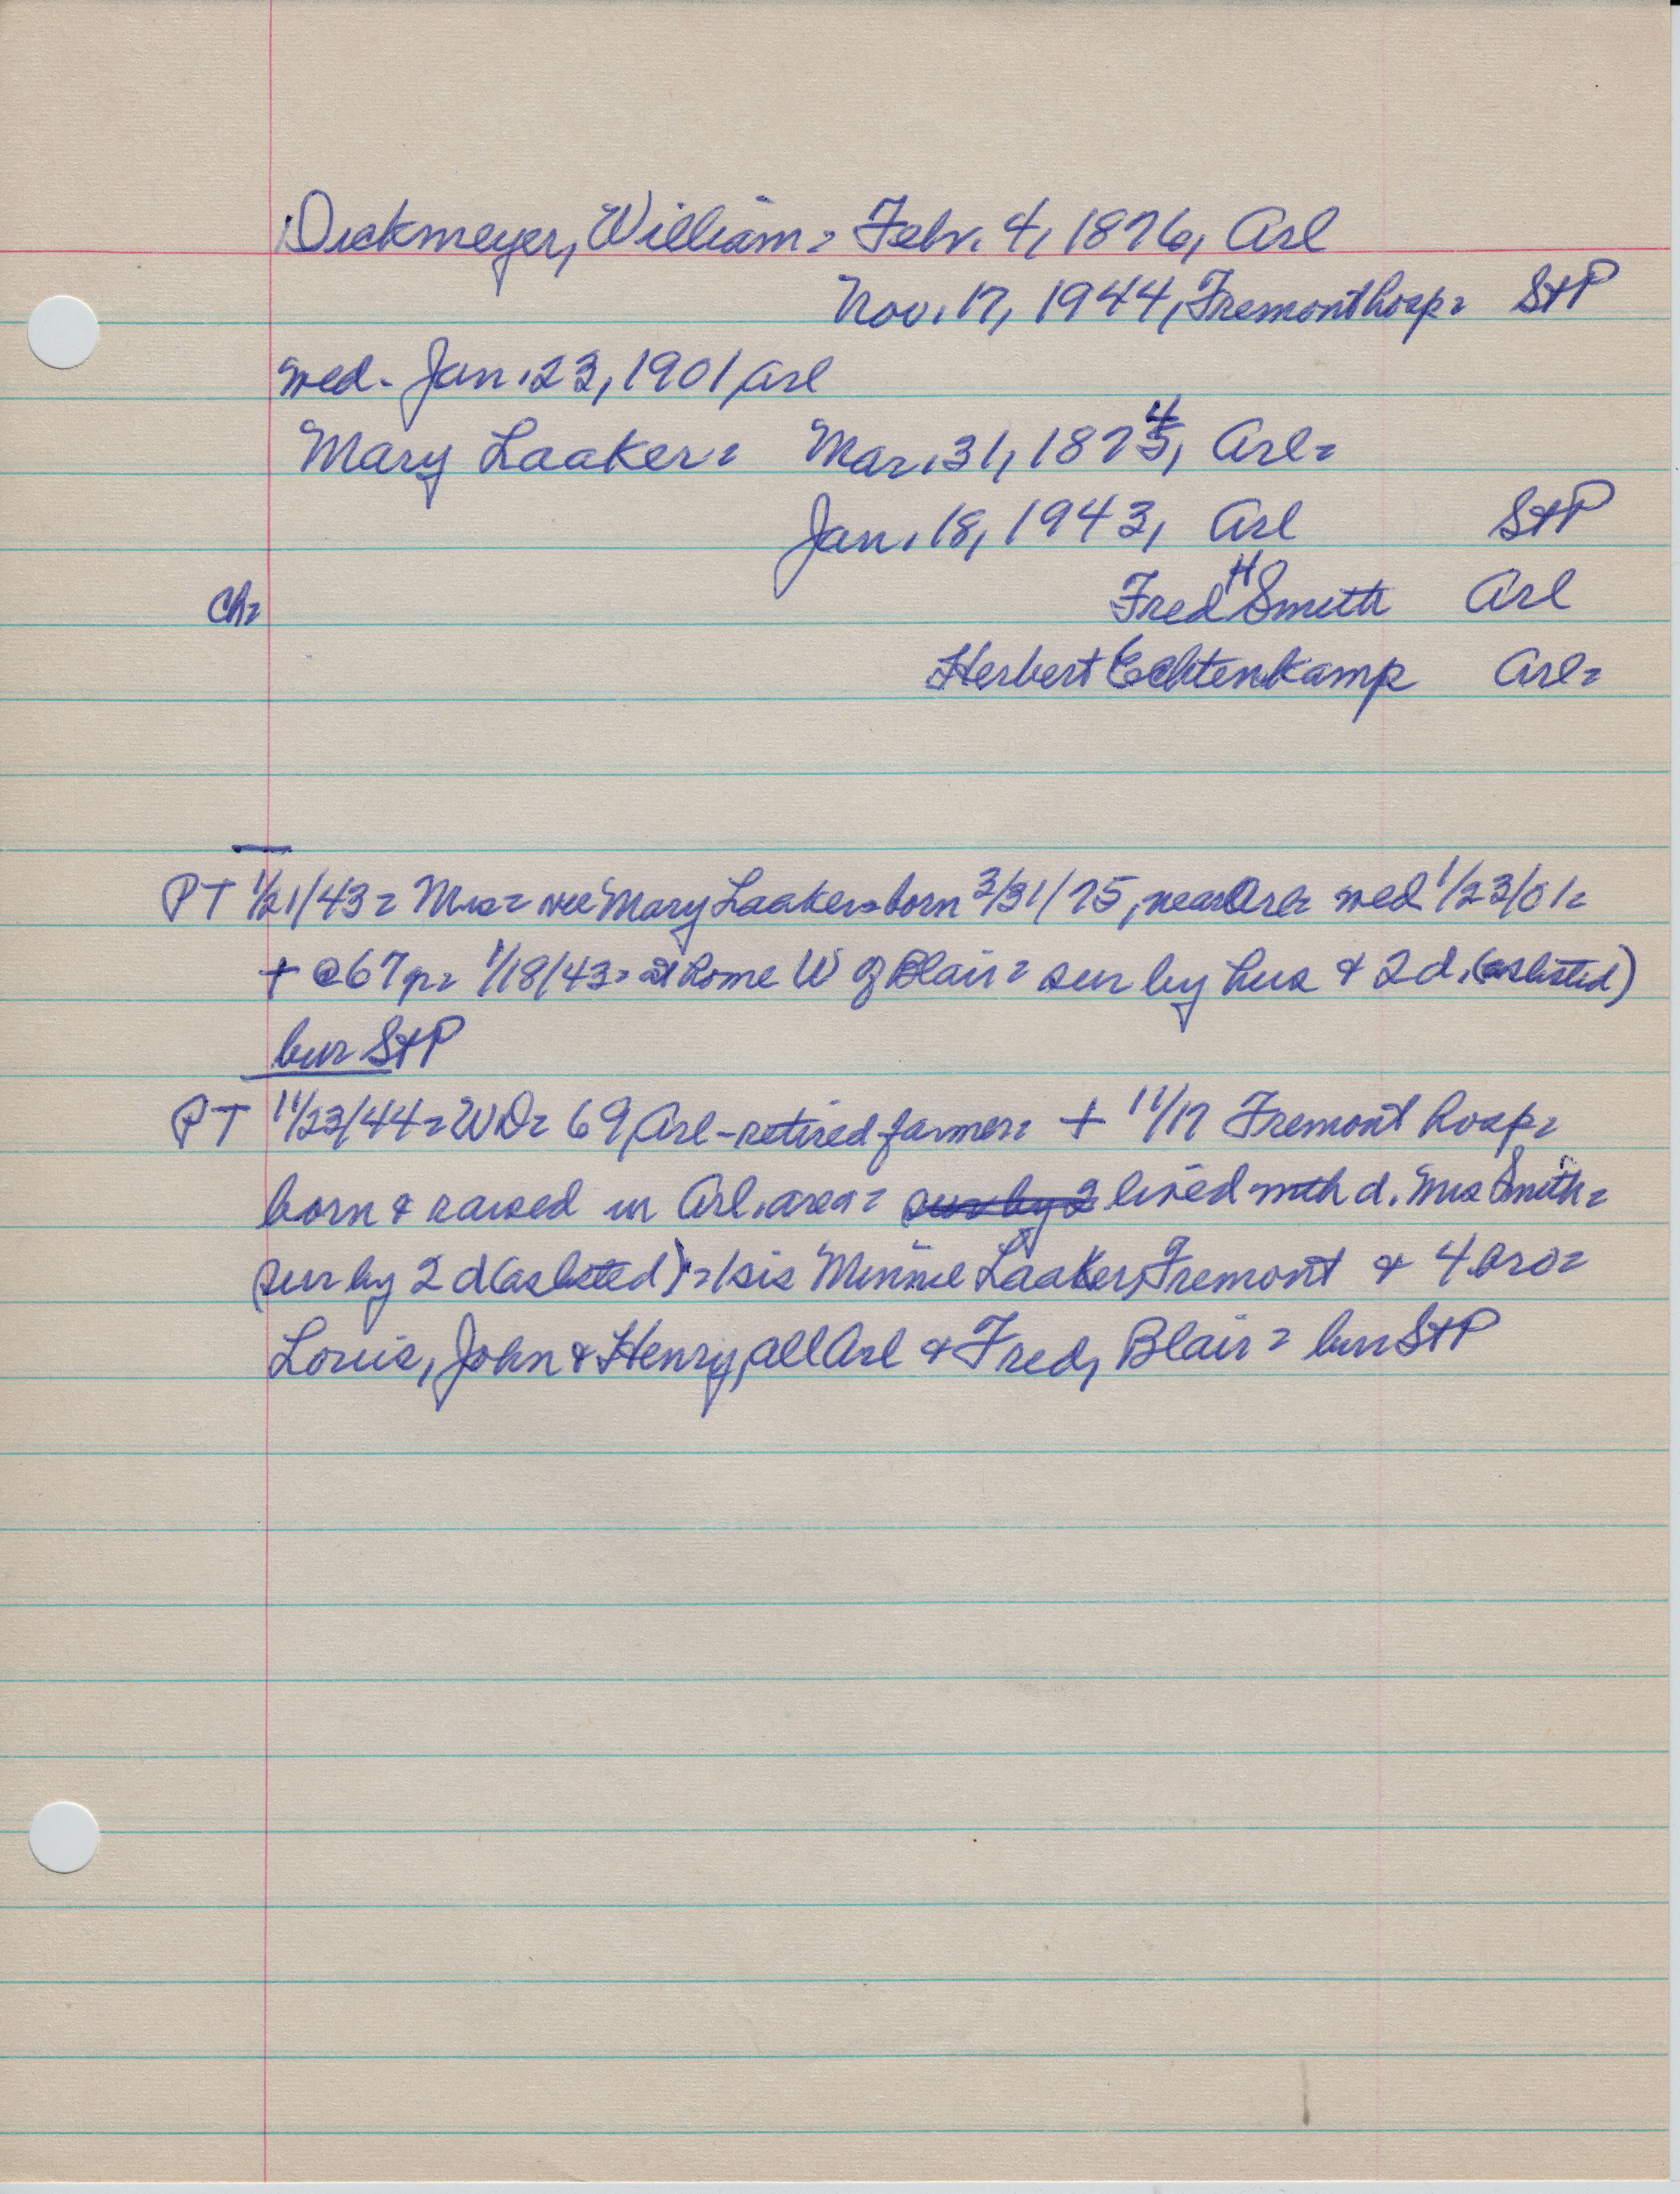 Dickmeyer, William = Febr. 4, 1876, Arl
Nov. 17, 1944, Fremont hosp = StP
wed - Jan. 23, 1901, Arl
Mary Laaker = Mar. 31, 1875, 4 Arl =
Jan. 18, 1943, Arl StP
Ch = Fred H Smith Arl
Herbert Echtenkamp Arl =
PT 1/21/43 = Mrs = nee Mary Laaker = born 3/31/75, near Arl = wed 1/23/01 =
+ @ 67 yr = 1/18/43 = at home W of Blair = sur by hus & 2 d. (as listed)
bur StP
PT 11/23/44 = WD = 69, Arl - retired farmer = + 11/17 Fremont hosp =
born & raised in Arl. area = sur by 2 lived with d. Mrs Smith =
sur by 2 d (as listed) = 1 sis Minnie Laaker, Fremont & 4 bro =
Louis, John & Henry, all Arl & Fred, Blair = bur StP